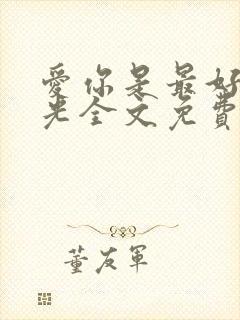 愛你是最好
光全文免費
董友軍